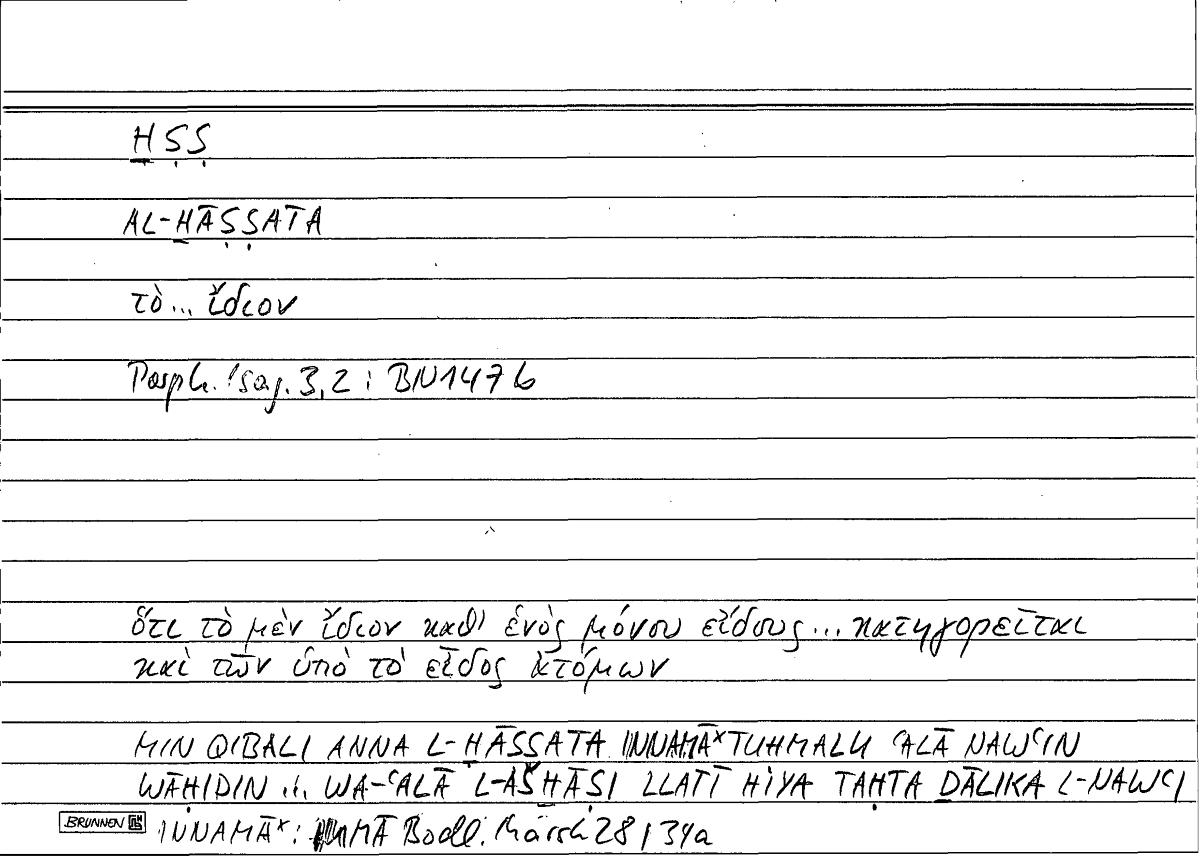 ḪṢṢ
AL-ḪĀṢṢATA
τὸ... ἴδιον
Porph. Isag. 3,2 : BN147b
ὅτι τὸ μὲν ἴδιον καθ' ἑνὸς μόνου εἴδους... κατηγορεῖται
καὶ τῶν ὑπὸ τὸ εἶδος ἀτόμων
MIN QIBALI ANNA L-ḪĀṢṢATA INNAMĀˣ TUḤMALU ʿALĀ NAWʿIN
WĀḤIDIN ... WA-ʿALĀ L-AŠḪĀṢI LLATĪ HIYA TAḤTA ḎĀLIKA L-NAWʿI
BRUNNEN INNAMĀˣ : MĀ Bodl. Marsh 28 / 34a